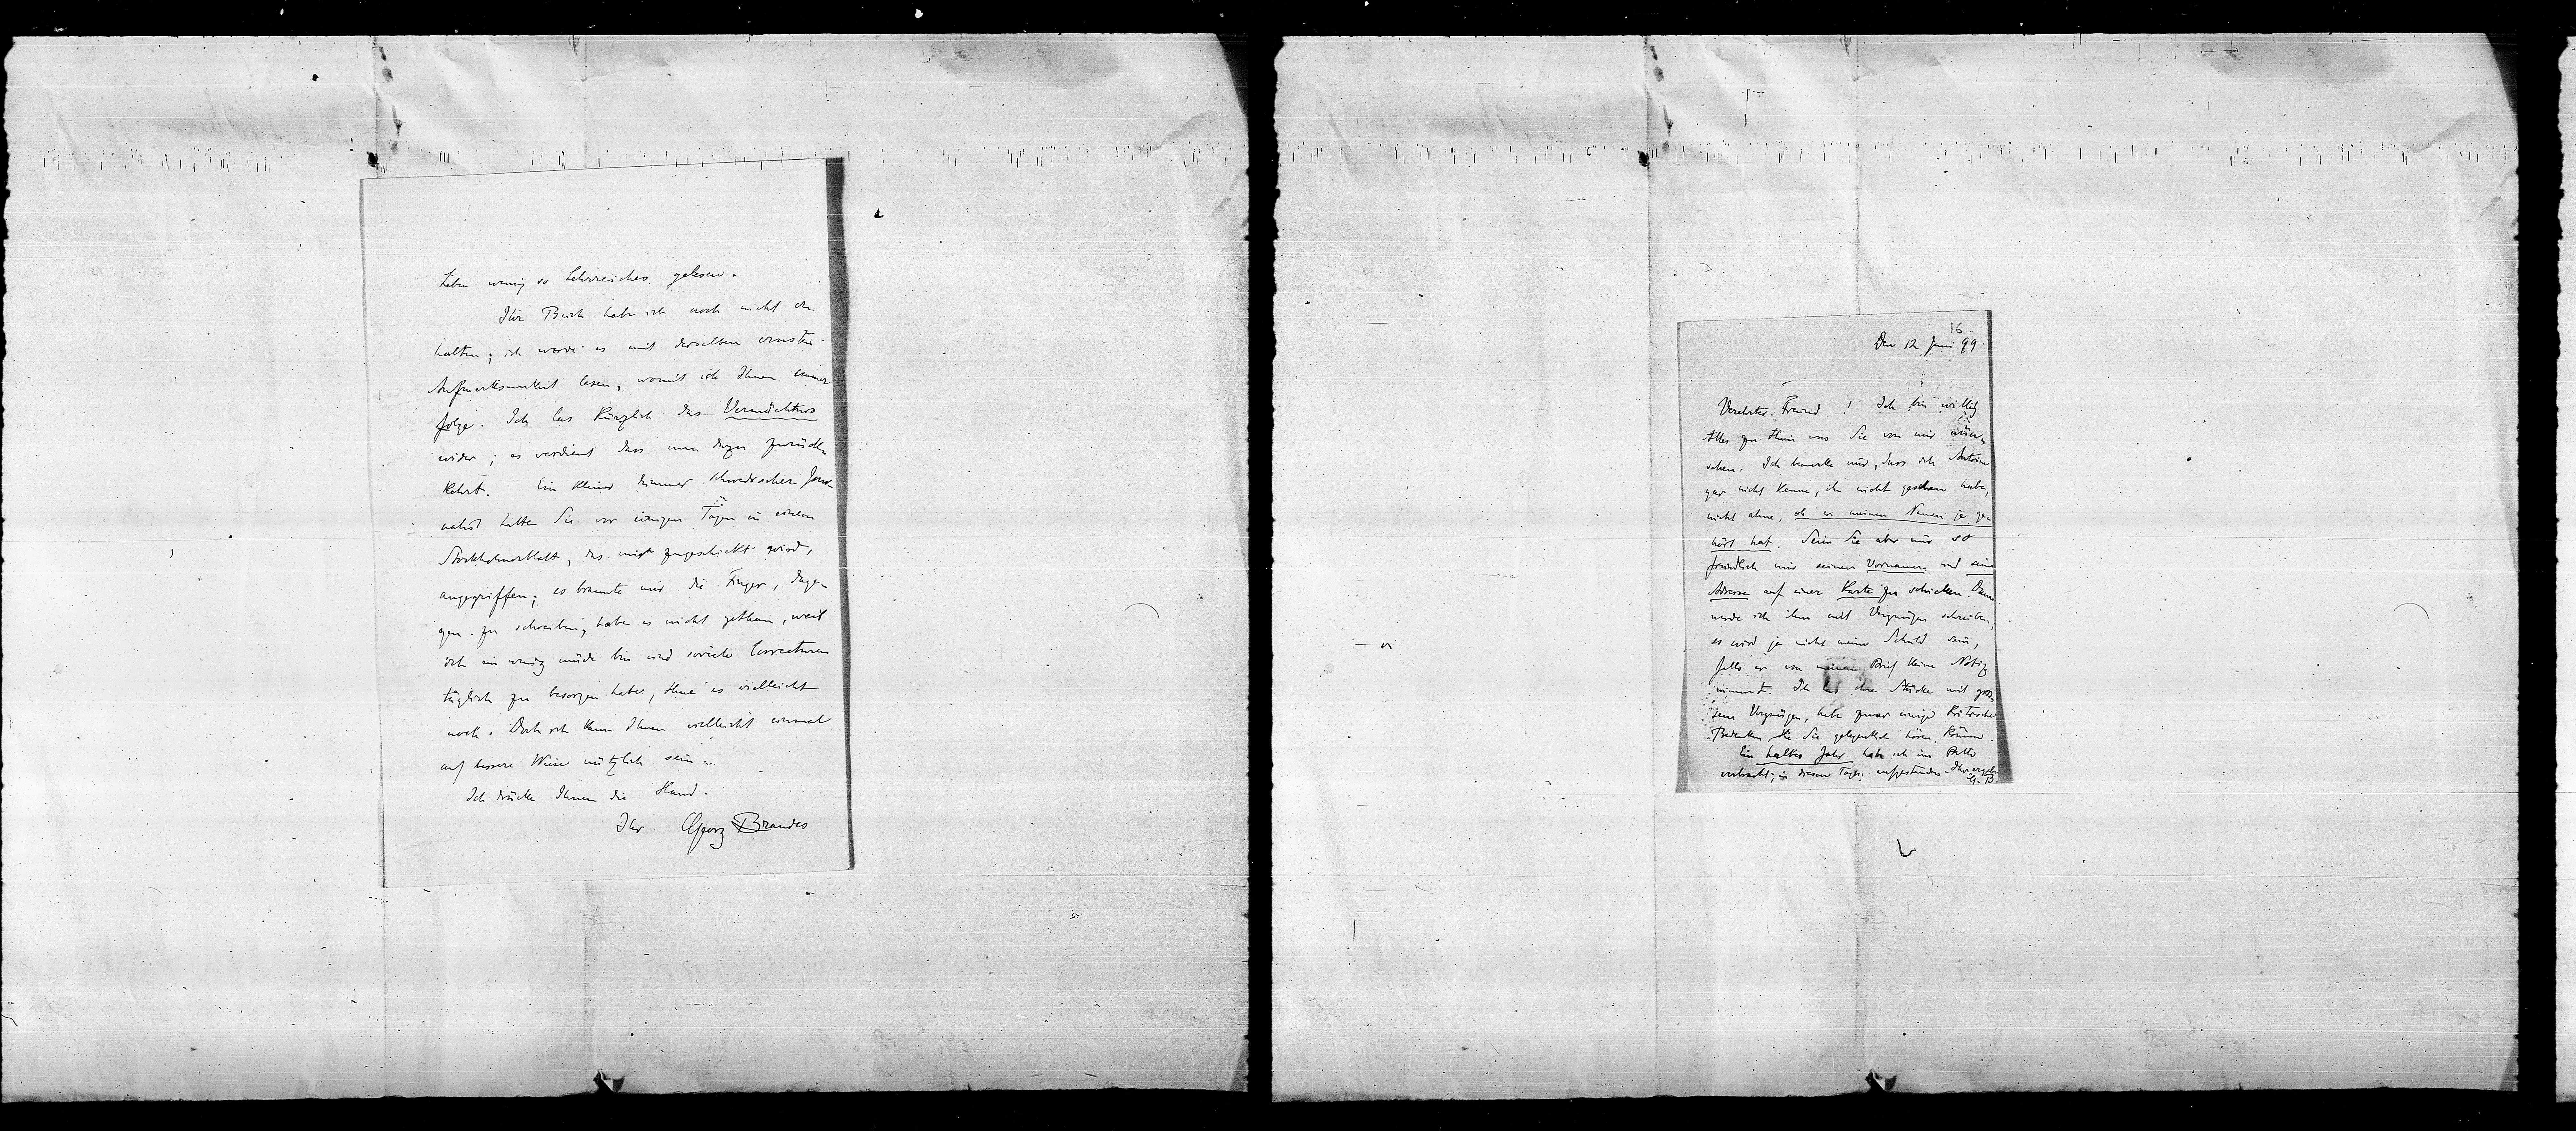 Leben wenig so Lehrreiches gelesen.
Ihr Buch habe ich noch nicht er
halten; ich werde es mit derselben ernsten
Aufmerksamkeit lesen, womit ich Ihnen immer
folge. Ich las kürzlich das Vermächtnis
wider; es verdient dass man dazu zurück
kehrt. Ein kleiner dummer schwedischer Jour-
nalist hatte Sie vor einigen Tagen in einem
Stockholmerblatt, das mir zugeschickt wird,
angegriffen; es brannte mir die Finger, dage-
gen zu schreiben, habe es nicht gethan, weil
ich ein wenig müde bin und soviele Correcturen
täglich zu besorgen habe, thue es vielleicht
noch. Doch ich kann Ihnen vielleicht einmal
auf bessere Weise nützlich sein.
Ich drücke Ihnen die Hand.
Ihr Georg Brandes
16
Den 12 Juni 99
Verehrter Freund! Ich bin willig
Alles zu thun was Sie von mir wün-
schen. Ich bemerke nur, dass ich Antoine
gar nicht kenne, ihn nicht gesehen habe,
nicht ahne, ob er meinen Namen je ge
hört hat. Seien Sie aber nur so
freundlich mir seinen Vornamen und seine
Adresse auf einer Karte zu schicken. Dann
werde ich ihm mit Vergnügen schreiben,
es wird ja nicht meine Schuld sein,
falls er von meinem Brief keine Notiz
nimmt. Ich las die Stücke mit gros-
sem Vergnügen, habe zwar einige kritische
Bedenken, die Sie gelegentlich hören können.
Ein halbes Jahr habe ich im Bette
verbracht; in diesen Tagen aufgestanden. Ihr ergeb.
G. B.